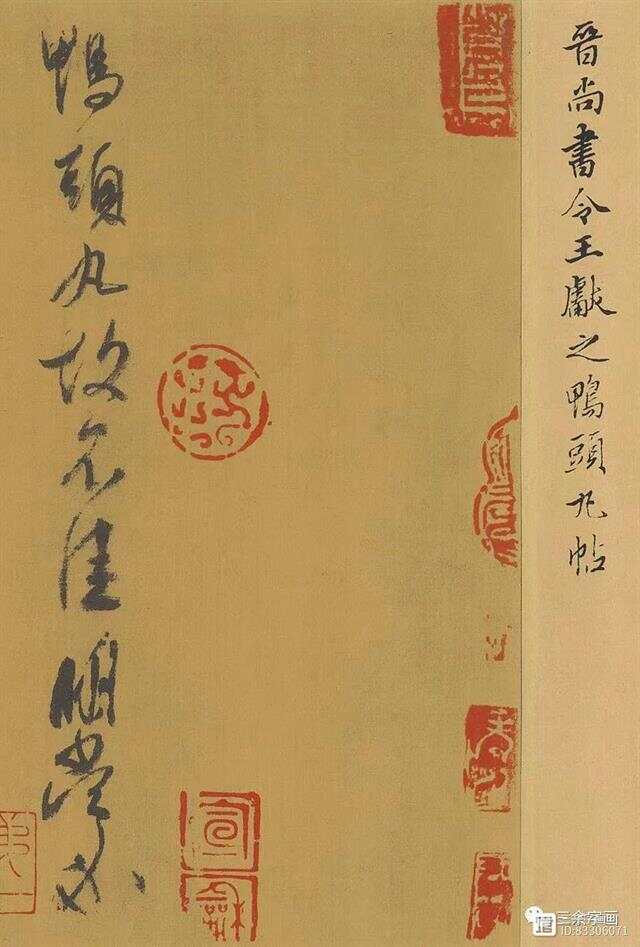 晉尚書令王獻之鴨頭丸帖
鴨頭丸故不佳明當必
三余字画
ID:83306071